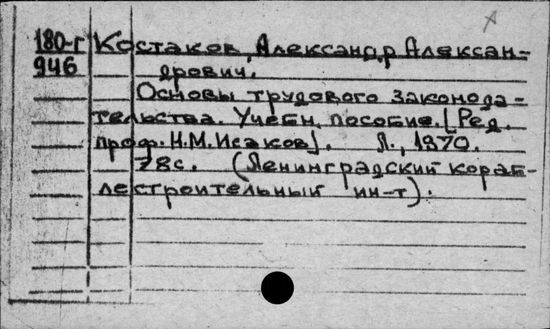 180-г Костаков, Александр Алексан-
946 дрович.
Основы трудового законода-
тельства. Учебн. пособие. [Ред.
проф. Н.М.Исаков]. Л., 1970.
78с. (Ленинградский кораб-
лестроительный ин-т).